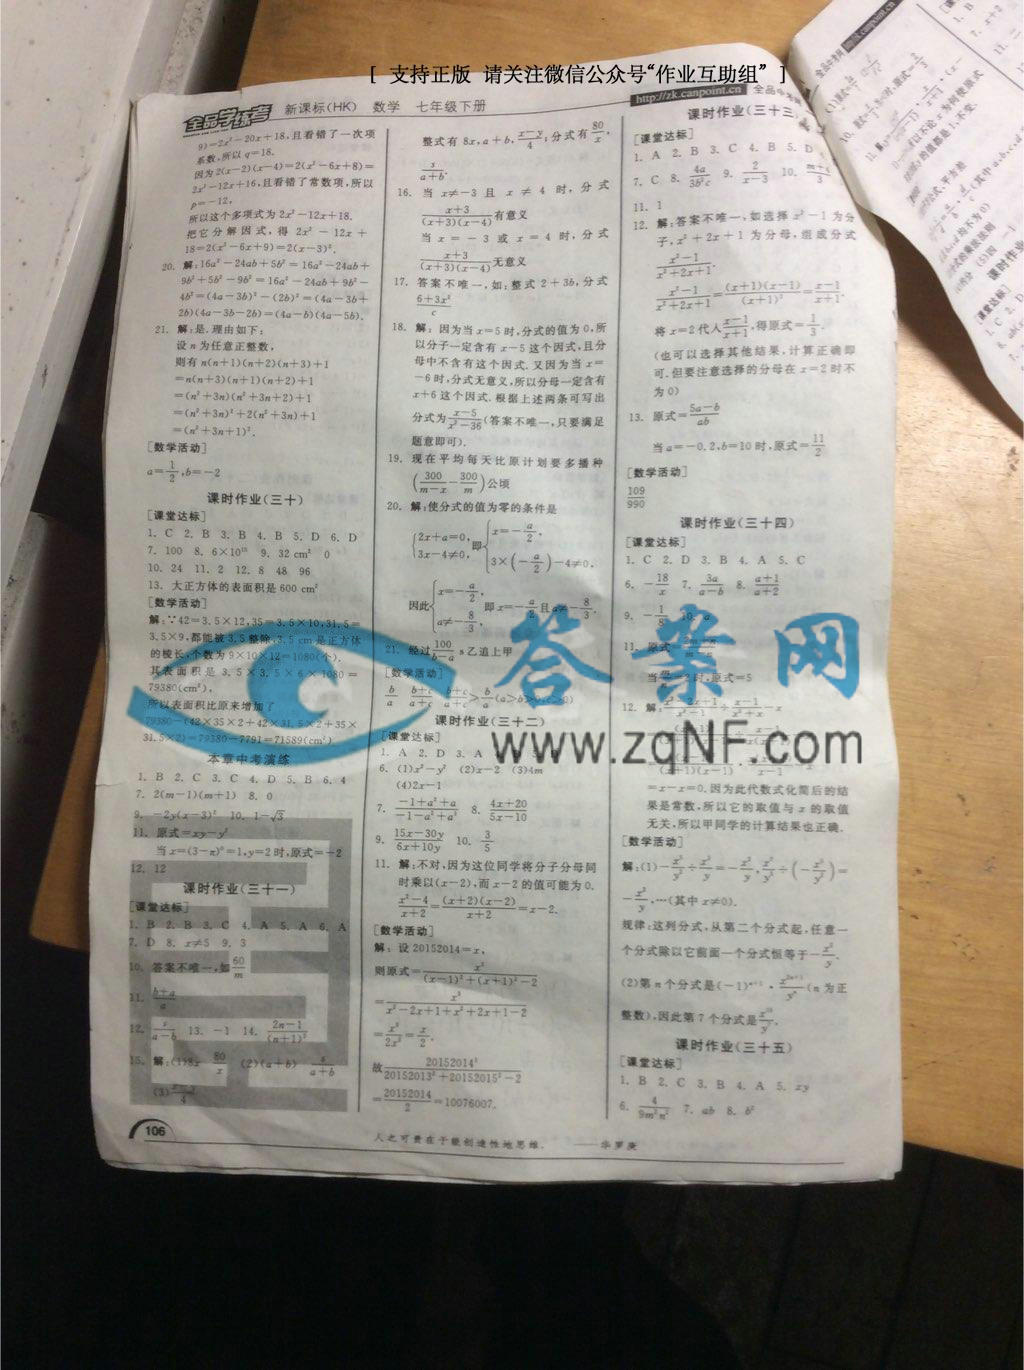 [ 支持正版 请关注微信公众号“作业互助组” ]
全品学练考 新课标(HK) 数学 七年级下册
http://zk.canpoint.cn
9)=2x²-20x+18,且看错了一次项
系数,所以 q=18.
因为2(x-2)(x-4)=2(x²-6x+8)=
2x²-12x+16,且看错了常数项,所以
p=-12,
所以这个多项式为 2x²-12x+18.
把它分解因式,得 2x²-12x+
18=2(x²-6x+9)=2(x-3)².
20. 解:16a²-24ab+5b²=16a²-24ab+
9b²+5b²-9b²=16a²-24ab+9b²-
4b²=(4a-3b)²-(2b)²=(4a-3b+
2b)(4a-3b-2b)=(4a-b)(4a-5b).
21. 解:是.理由如下:
设 n 为任意正整数,
则有 n(n+1)(n+2)(n+3)+1
=n(n+3)(n+1)(n+2)+1
=(n²+3n)(n²+3n+2)+1
=(n²+3n)²+2(n²+3n)+1
=(n²+3n+1)².
[数学活动]
a=1/2,b=-2
课时作业(三十)
[课堂达标]
1. C 2. B 3. B 4. B 5. D 6. D
7. 100 8. 6×10¹⁵ 9. 32 cm² 0
10. 24 11. 2 12. 8 48 96
13. 大正方体的表面积是 600 cm²
[数学活动]
解:∵42=3.5×12,35=3.5×10,31.5=
3.5×9,都能被 3.5 整除,3.5 cm 是正方体
的棱长,个数为 9×10×12=1080(个).
其表面积是 3.5×3.5×6×1080=
79380(cm²),
所以表面积比原来增加了
79380-(42×35×2+42×31.5×2+35×
31.5×2)=79380-7791=71589(cm²)
本章中考演练
1. B 2. C 3. C 4. D 5. B 6. 4
7. 2(m-1)(m+1) 8. 0
9. -2y(x-3)² 10. 1-√3
11. 原式=xy-y²
当 x=(3-π)⁰=1,y=2 时,原式=-2
12. 12
课时作业(三十一)
[课堂达标]
1. B 2. B 3. C 4. A 5. A 6. A
7. D 8. x≠5 9. 3
10. 答案不唯一,如60/m
11. (b+a)/a
12. s/(a-b) 13. -1 14. (2n-1)/(n+1)²
15. 解:(1)8x 80/x (2)(a+b) s/(a+b)
(3)(x-y)/4
106
整式有 8x,a+b,(x-y)/4;分式有80/x,
s/(a+b).
16. 当 x≠-3 且 x≠4 时,分式
(x+3)/((x+3)(x-4))有意义
当 x=-3 或 x=4 时,分式
(x+3)/((x+3)(x-4))无意义
17. 答案不唯一,如:整式 2+3b,分式
(6+3x²)/c
18. 解:因为当 x=5 时,分式的值为 0,所
以分子一定含有 x-5 这个因式,且分
母中不含有这个因式.又因为当 x=
-6时,分式无意义,所以分母一定含有
x+6 这个因式.根据上述两条可写出
分式为(x-5)/(x²-36)(答案不唯一,只要满足
题意即可).
19. 现在平均每天比原计划要多播种
(300/(m-x)-300/m)公顷
20. 解:使分式的值为零的条件是
{2x+a=0, 3x-4≠0, 即{x=-a/2, 3×(-a/2)-4≠0,
因此{x=-a/2, a≠-8/3, 即 x=-a/2且a≠-8/3.
21. 经过100/(b-a) s 乙追上甲
[数学活动]
b/a (b+c)/(a+c) (b+c)/(a+c)>b/a(a>b>0,c>0)
课时作业(三十二)
[课堂达标]
1. A 2. D 3. A
6. (1)x²-y² (2)x-2 (3)4m
(4)2x-1
7. (-1+a²+a)/(-1-a²+a³) 8. (4x+20)/(5x-10)
9. (15x-30y)/(6x+10y) 10. 3/5
11. 解:不对,因为这位同学将分子分母同
时乘以(x-2),而 x-2 的值可能为 0.
(x²-4)/(x+2)=((x+2)(x-2))/(x+2)=x-2.
[数学活动]
解:设 20152014=x,
则原式=x³/((x-1)²+(x+1)²-2)
=x³/(x²-2x+1+x²+2x+1-2)
=x³/2x²=x/2.
故20152014³/(20152013²+20152015²-2)
=20152014/2=10076007.
人之可贵在于能创造性地思维. ——华罗庚
课时作业(三十三)
[课堂达标]
1. A 2. B 3. C 4. B 5. D
7. C 8. 4a/3b²c 9. 2/(x-3) 10.
11. 1
12. 解:答案不唯一,如选择 x²-1 为分
子,x²+2x+1 为分母,组成分式
(x²-1)/(x²+2x+1).
(x²-1)/(x²+2x+1)=((x+1)(x-1))/(x+1)²=(x-1)/(x+1).
将 x=2 代入(x-1)/(x+1),得原式=1/3.
(也可以选择其他结果,计算正确即
可.但要注意选择的分母在 x=2 时不
为 0)
13. 原式=(5a-b)/ab
当 a=-0.2,b=10 时,原式=11/2
[数学活动]
109/990
课时作业(三十四)
[课堂达标]
1. C 2. D 3. B 4. A 5. C
6. -18/x 7. 3a/(a-b) 8. (a+1)/(a+2)
9. -1/8 10.
11. 原式
时,原式=5
12. 解:
=x-x=0.因为此代数式化简后的结
果是常数,所以它的取值与 x 的取值
无关,所以甲同学的计算结果也正确.
[数学活动]
解:(1)-x⁵/y²÷x³/y=-x²/y,x⁷/y³÷(-x⁵/y²)=
-x²/y,…(其中 x≠0).
规律:这列分式,从第二个分式起,任意一
个分式除以它前面一个分式恒等于-x²/y.
(2)第 n 个分式是(-1)ⁿ⁺¹·x²ⁿ⁺¹/yⁿ(n 为正
整数),因此第 7 个分式是x¹⁵/y⁷.
课时作业(三十五)
[课堂达标]
1. B 2. C 3. B 4. A 5. xy
6. 4/9m²n² 7. ab 8. b²
答案网
www.zqNF.com